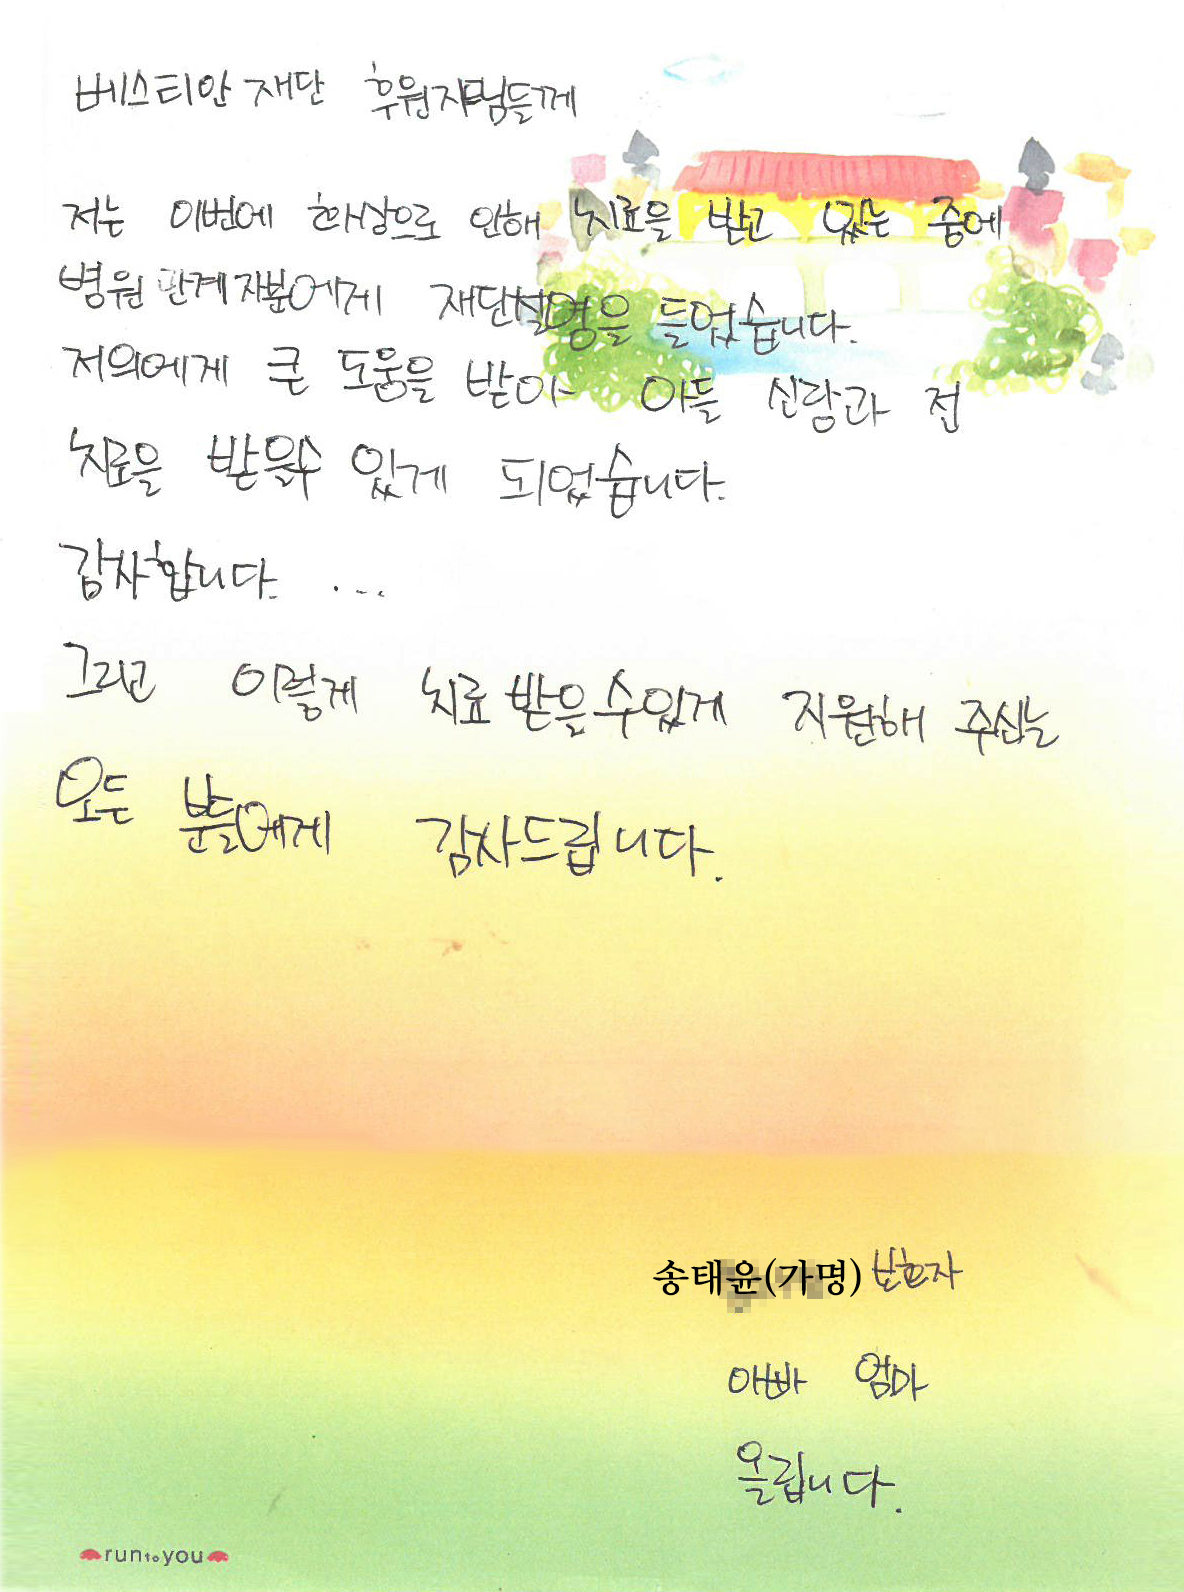 베스티안 재단 후원자님들께
저는 이번에 화상으로 인해 치료을 받고 있는 중에
병원 관계자분에게 재단설명을 들었습니다.
저의에게 큰 도움을 받아 아들 신랑과 전
치료을 받을수 있게 되었습니다.
감차합니다. ...
그리고 이렇게 치료 받을 수있게 지원해 주신는
모든 분들에게 감사드립니다.
송태윤(가명) 보호자
아빠 엄마
올립니다.
run to you